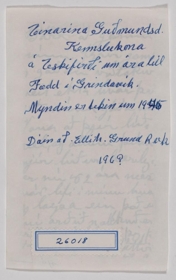 Einarína Guðmundsd.
Kennslukona
á Eskifirði um ára bil
Fædd í Grindavík.
Myndin er tekin um 1945
Dáin at Ellih. Grund Rvík
1969
26018